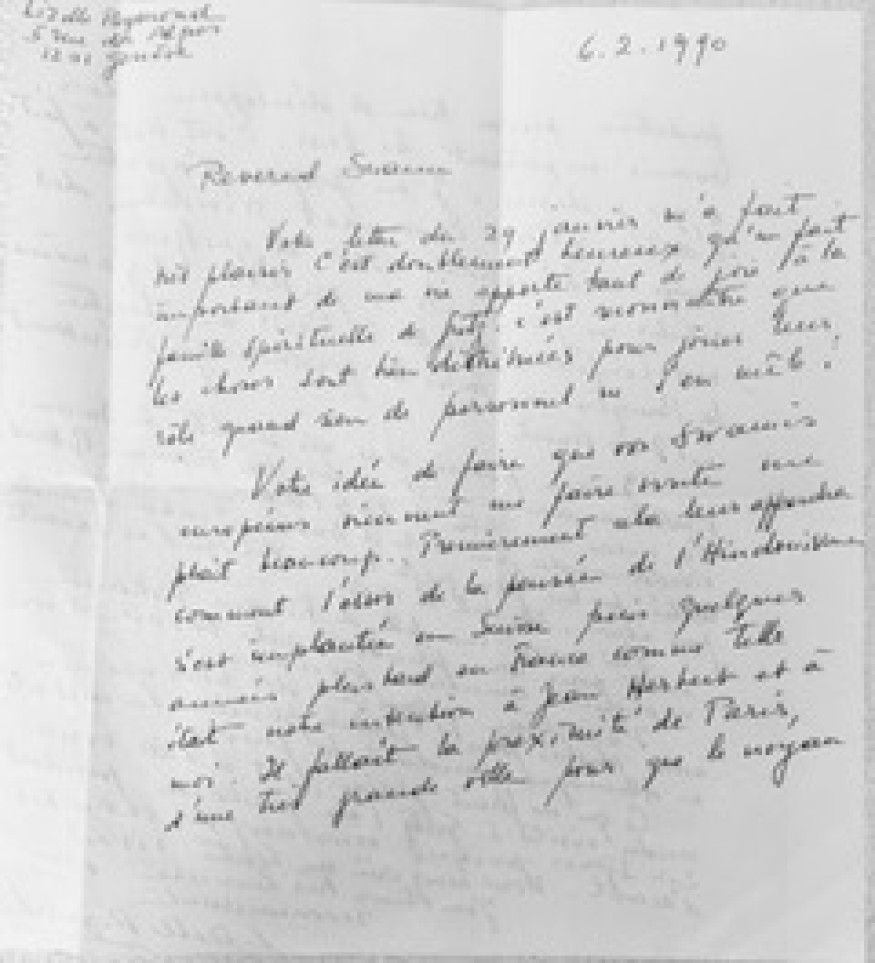 Lizelle Reymond
5 rue des Alpes
1201 Genève
6.2.1990
Reverend Swami
Votre lettre du 29 janvier m'a fait
très plaisir C'est doublement heureux qu'un fait
important de ma vie apporte tant de joie à la
famille spirituelle de c'est reconnaître que
les choses sont bien pour jouer leur
rôle quand rien de personnel ne s'en mêle!
Votre idée de faire que vos Swamis
européens viennent me faire visite me
plait beaucoup. Premièrement cela leur apprendra
comment l'essor de la pensée de l'Hindouisme
s'est implantée en Suisse puis quelques
années plus tard en France comme telle
était notre intention à Jean Herbert et à
moi. Il fallait la proximité de Paris,
d'une très grande ville pour que le noyau